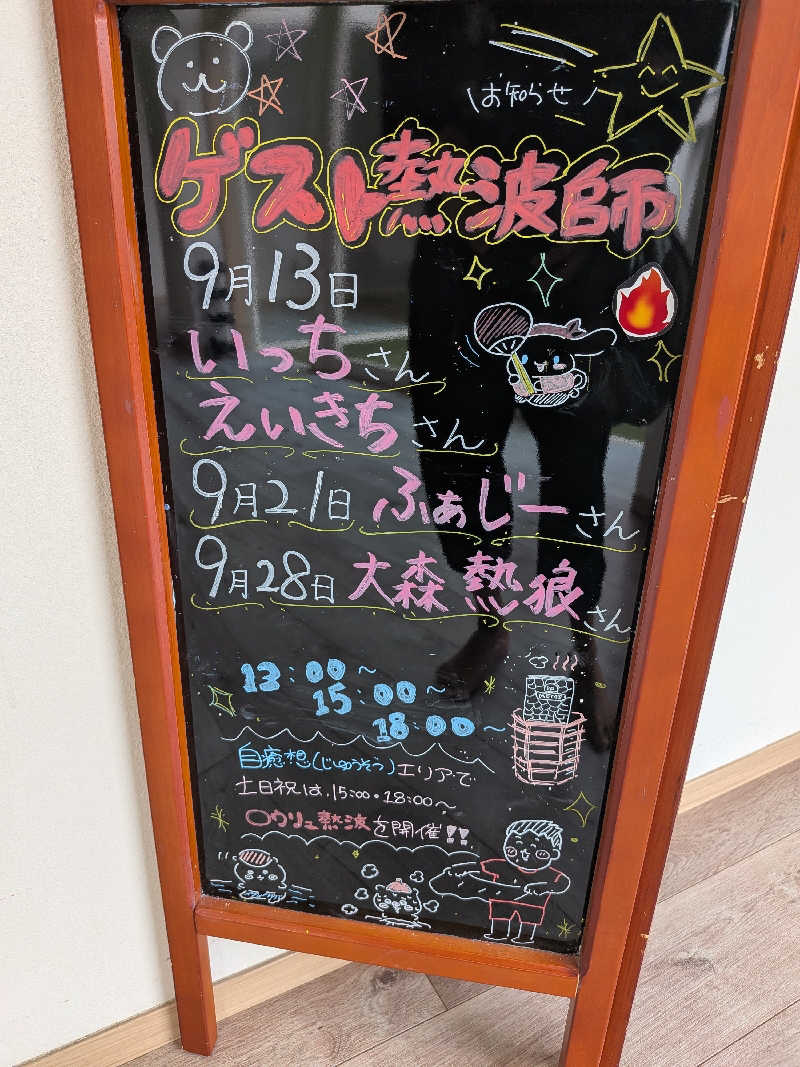 \お知らせ/
ゲスト熱波師
9月13日
いっちさん
えいきちさん
9月21日 ふぁじーさん
9月28日 大森熱狼さん
13:00~
15:00~
18:00~
自癒想(じゆうそう)エリアで
土日祝は、15:00・18:00~
ロウリュ熱波を開催!!